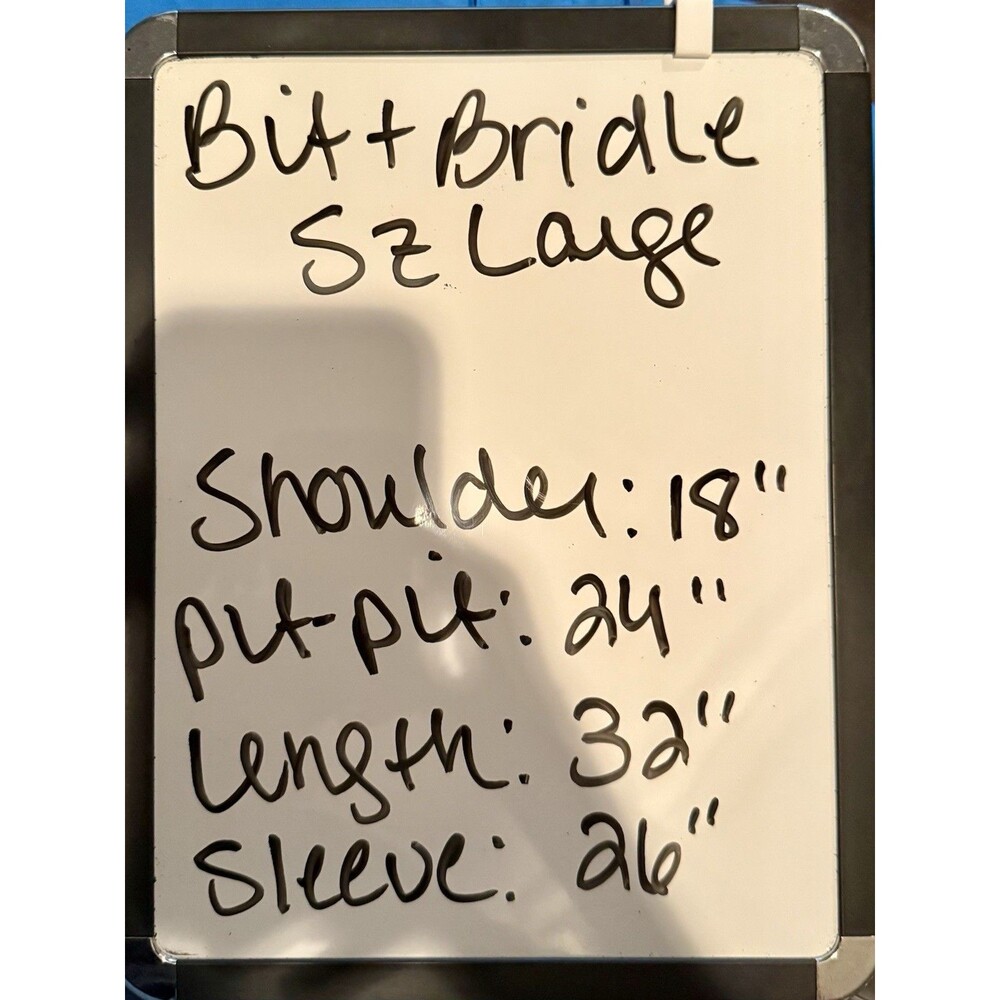 Bit + Bridle
Sz Large
Shoulder: 18"
pit-pit: 24"
Length: 32"
Sleeve: 26"